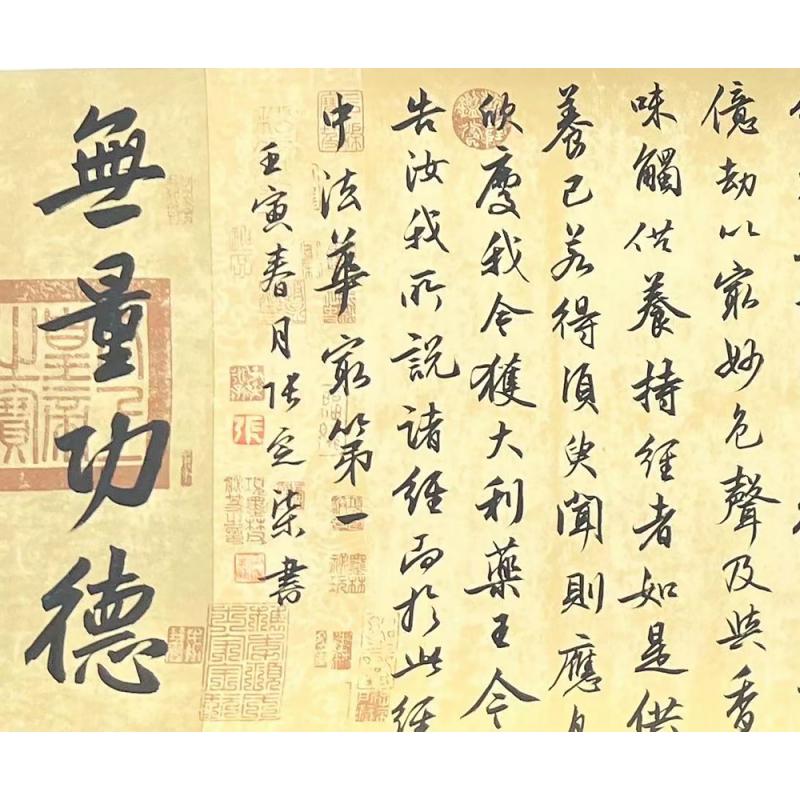 億劫以最妙色聲及與香
味觸供養持經者如是供
養已若得須臾聞則應自
欣慶我今獲大利藥王今
告汝我所說諸經而於此經
中法華最第一
壬寅春月張定柒書
張
無量功德